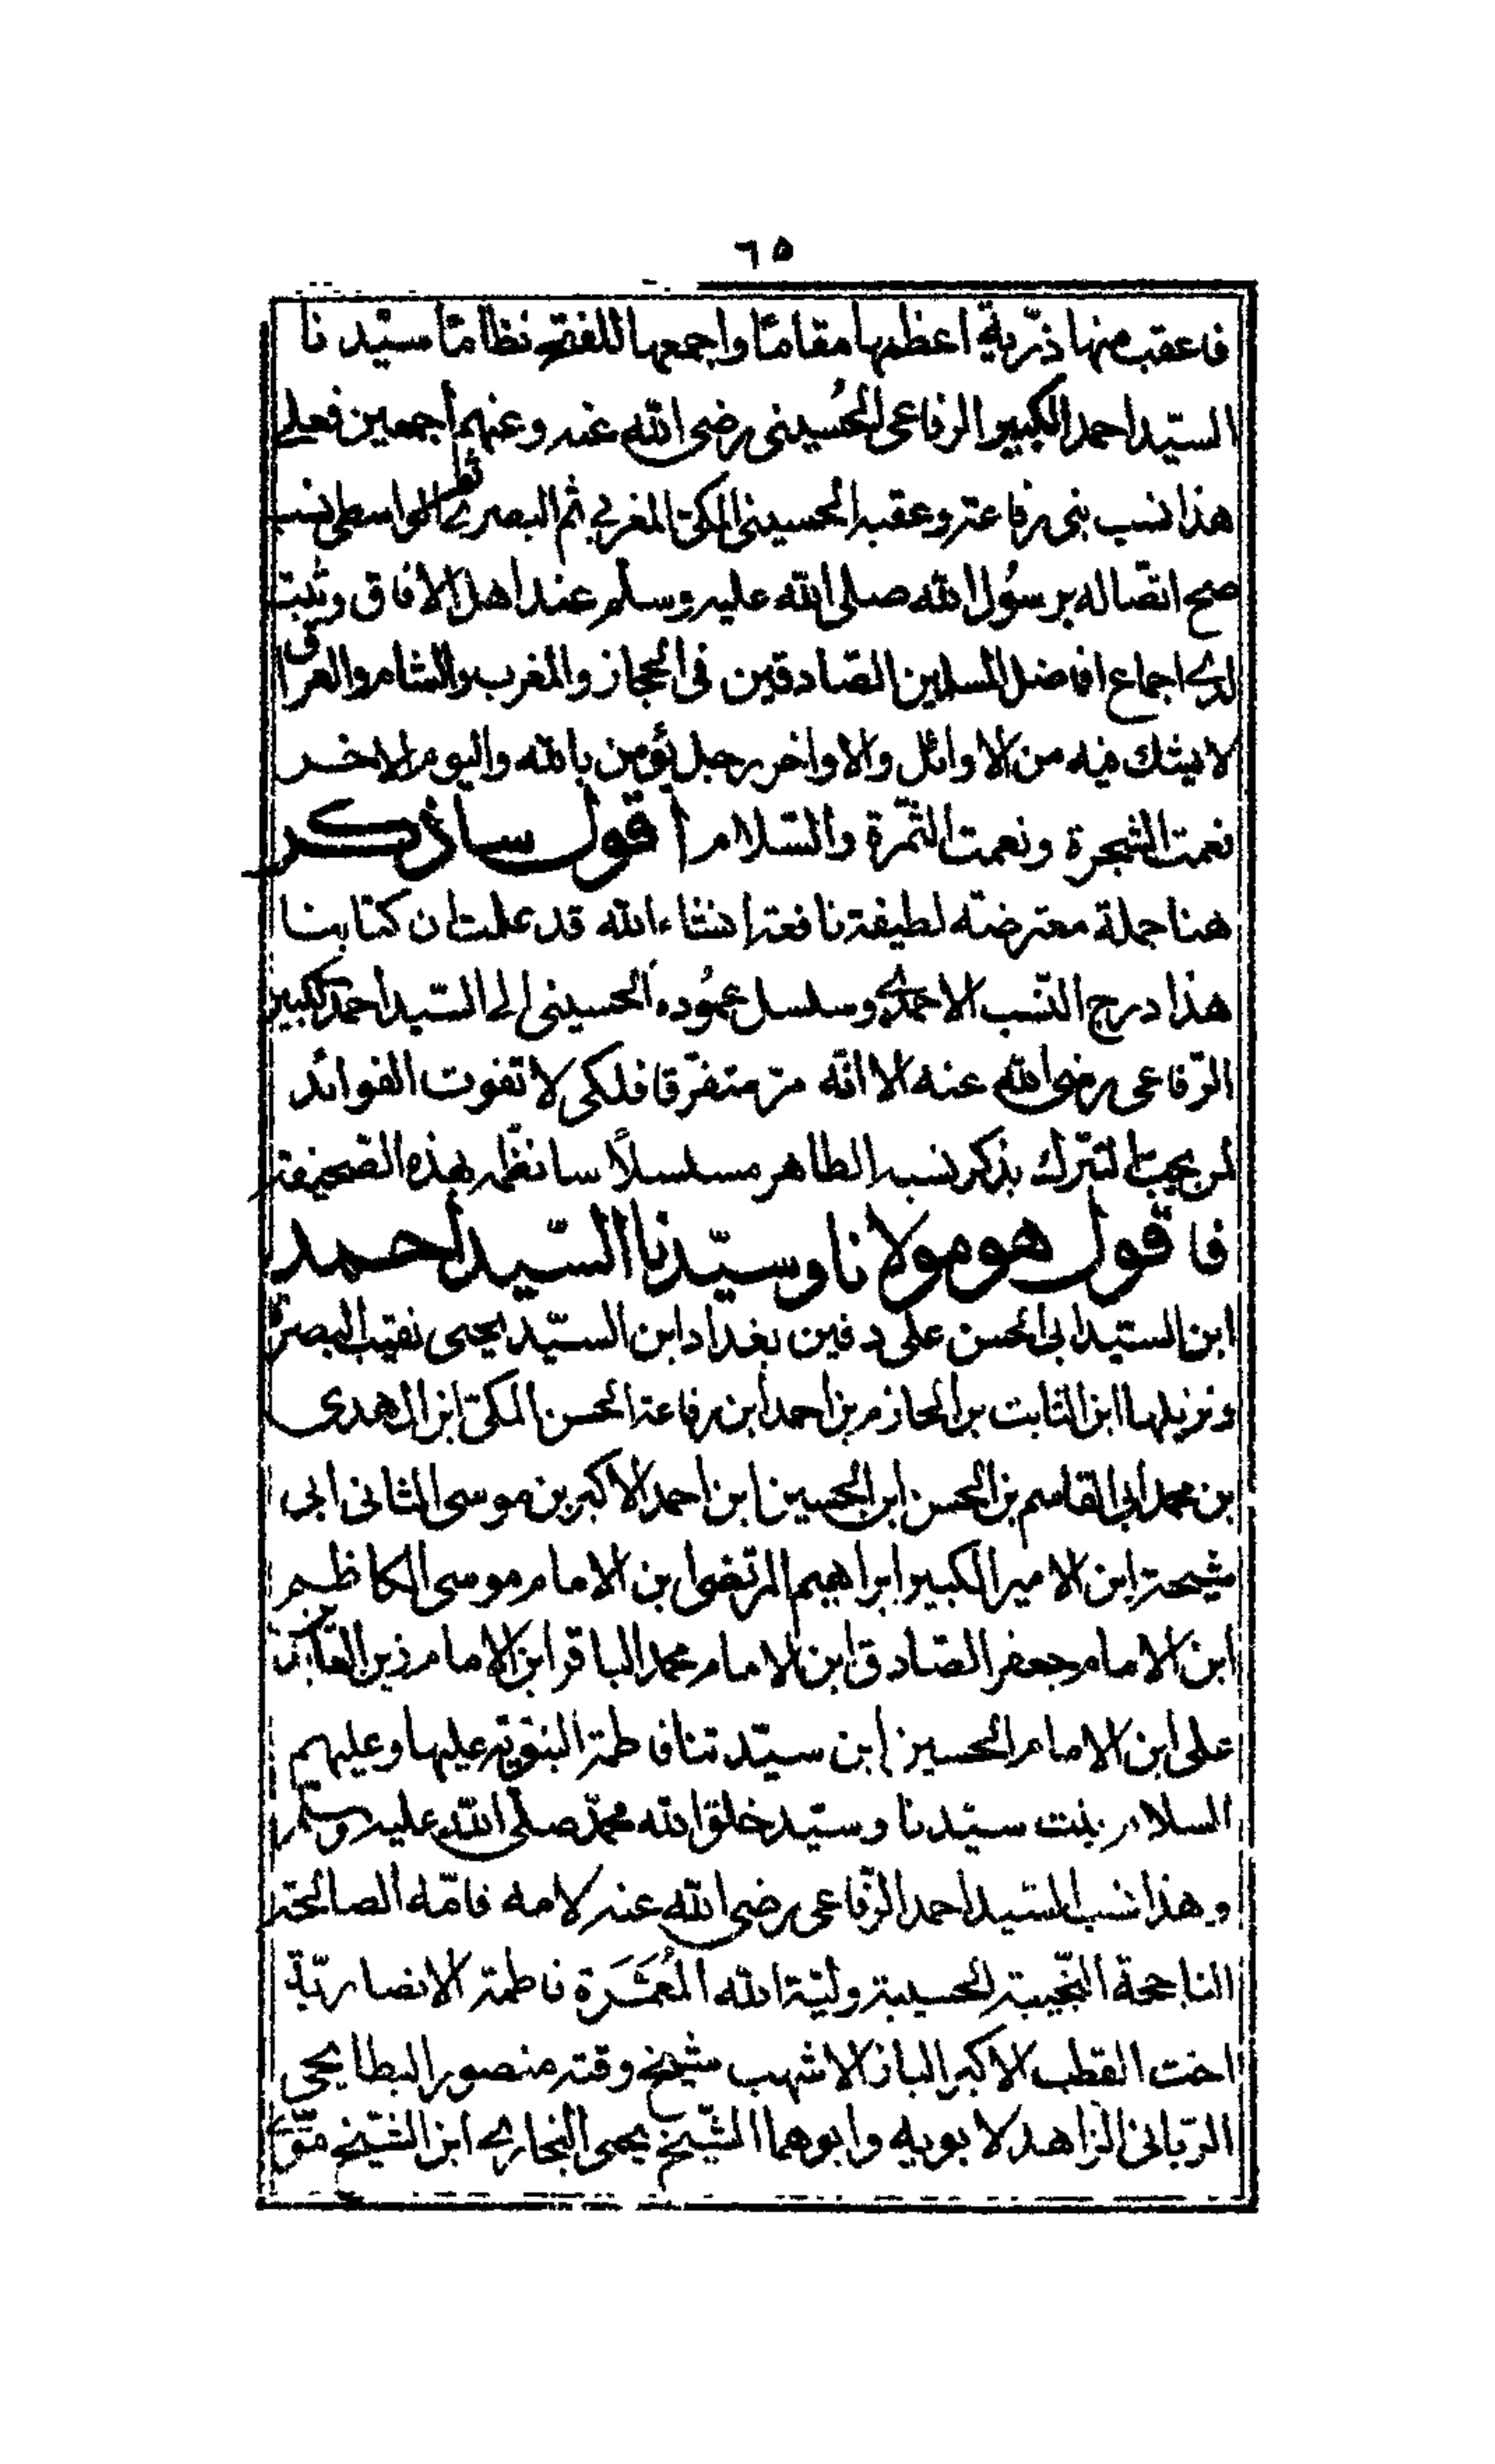 ٦٥
فاعقب منها ذرّية اعظمها مقامًا واجمعها للفقر نظامًا سيّدنا
السيّد احمد الكبير الرفاعى الحُسينى رضى الله عنه وعنهم اجمعين فعلى
هذا نسب بنى رفاعة وعقبه الحسينى المكى المغربى ثم البصرى ثم الواسطى نسب
صح اتصاله برسُول الله صلى الله عليه وسلم عند اهل الافاق وثبت
لدى اجماع افاضل المسلمين الصّادقين فى الحجاز والمغرب والشام والعراق
لا يشك فيه من الاوائل والاواخر رجل يؤمن بالله واليوم الاخر
نعمت الشجرة ونعمت الثّمرة والسّلام اقول ساذكر
هنا جملة معترضة لطيفة نافعة انشاءالله قد علمت ان كتابنا
هذا درج النّسب الاحمدى وسلسل عمُوده الحسينى الى السّيد احمد الكبير
الرّفاعى رضى الله عنه الا انّه مرّ متفرّقا فلكى لا تفوت الفوائد
لمن يحب التبرّك بذكر نسبه الطاهر مسلسلاً سانظّمه بهذه الصّحيفة
فاقول هو مولانا وسيّدنا السّيد احمد
ابن السيّد ابى الحسن على دفين بغداد ابن السيّد يحيى نقيب البصرة
ونزيلها ابن الثابت بن الحازم بن احمد ابن رفاعة الحسن المكى ابن المهدى
بن محمد ابى القاسم بن الحسن ابن الحسين ابن احمد الاكبر بن موسى الثانى ابى
شيحة ابن الامير الكبير ابراهيم المرتضى ابن الامام موسى الكاظم
ابن الامام جعفر الصّادق ابن الامام محمد الباقر ابن الامام زين العابدين
على ابن الامام الحسين ابن سيّدتنا فاطمة النبوّية عليها وعليهم
السلام بنت سيّدنا وسيّد خلق الله محمّد صلّى الله عليه وسلّم
وهذا نسب السّيد احمد الرّفاعى رضى الله عنه لامه فامّه الصالحة
الناجحة النّجيبة الحسيبة وليّة الله المُعَمَّرَة فاطمة الانصاريّة
اخت القطب الاكبر الباز الاشهب شيخ وقته منصور البطايحى
الرّبانى الزاهد لابويه وابوهما الشّيخ يحيى النجارى ابن الشّيخ